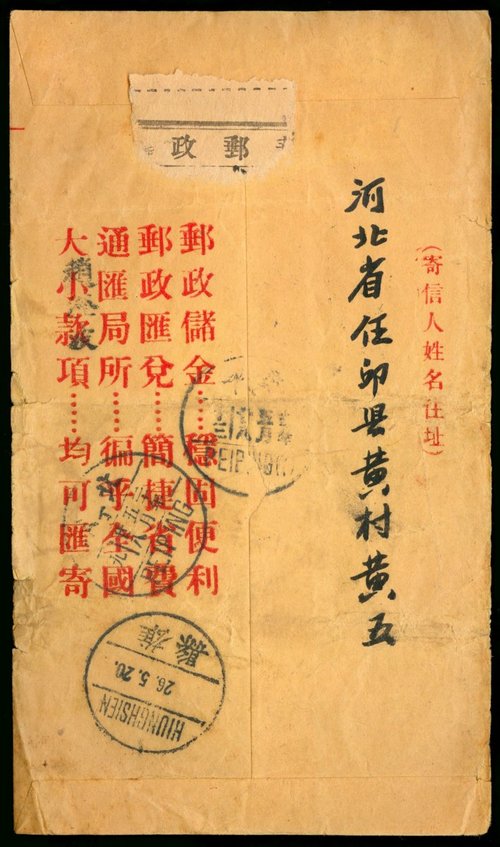 郵政
(寄信人姓名住址)
河北省任邱县黄村黄五
郵政儲金……穩固便利
郵政匯兌……簡捷省費
通匯局所……徧乎全國
大小款項……均可匯寄
PEIPING
PEIPING
雄縣
26.5.20.
HIUNGHSIEN